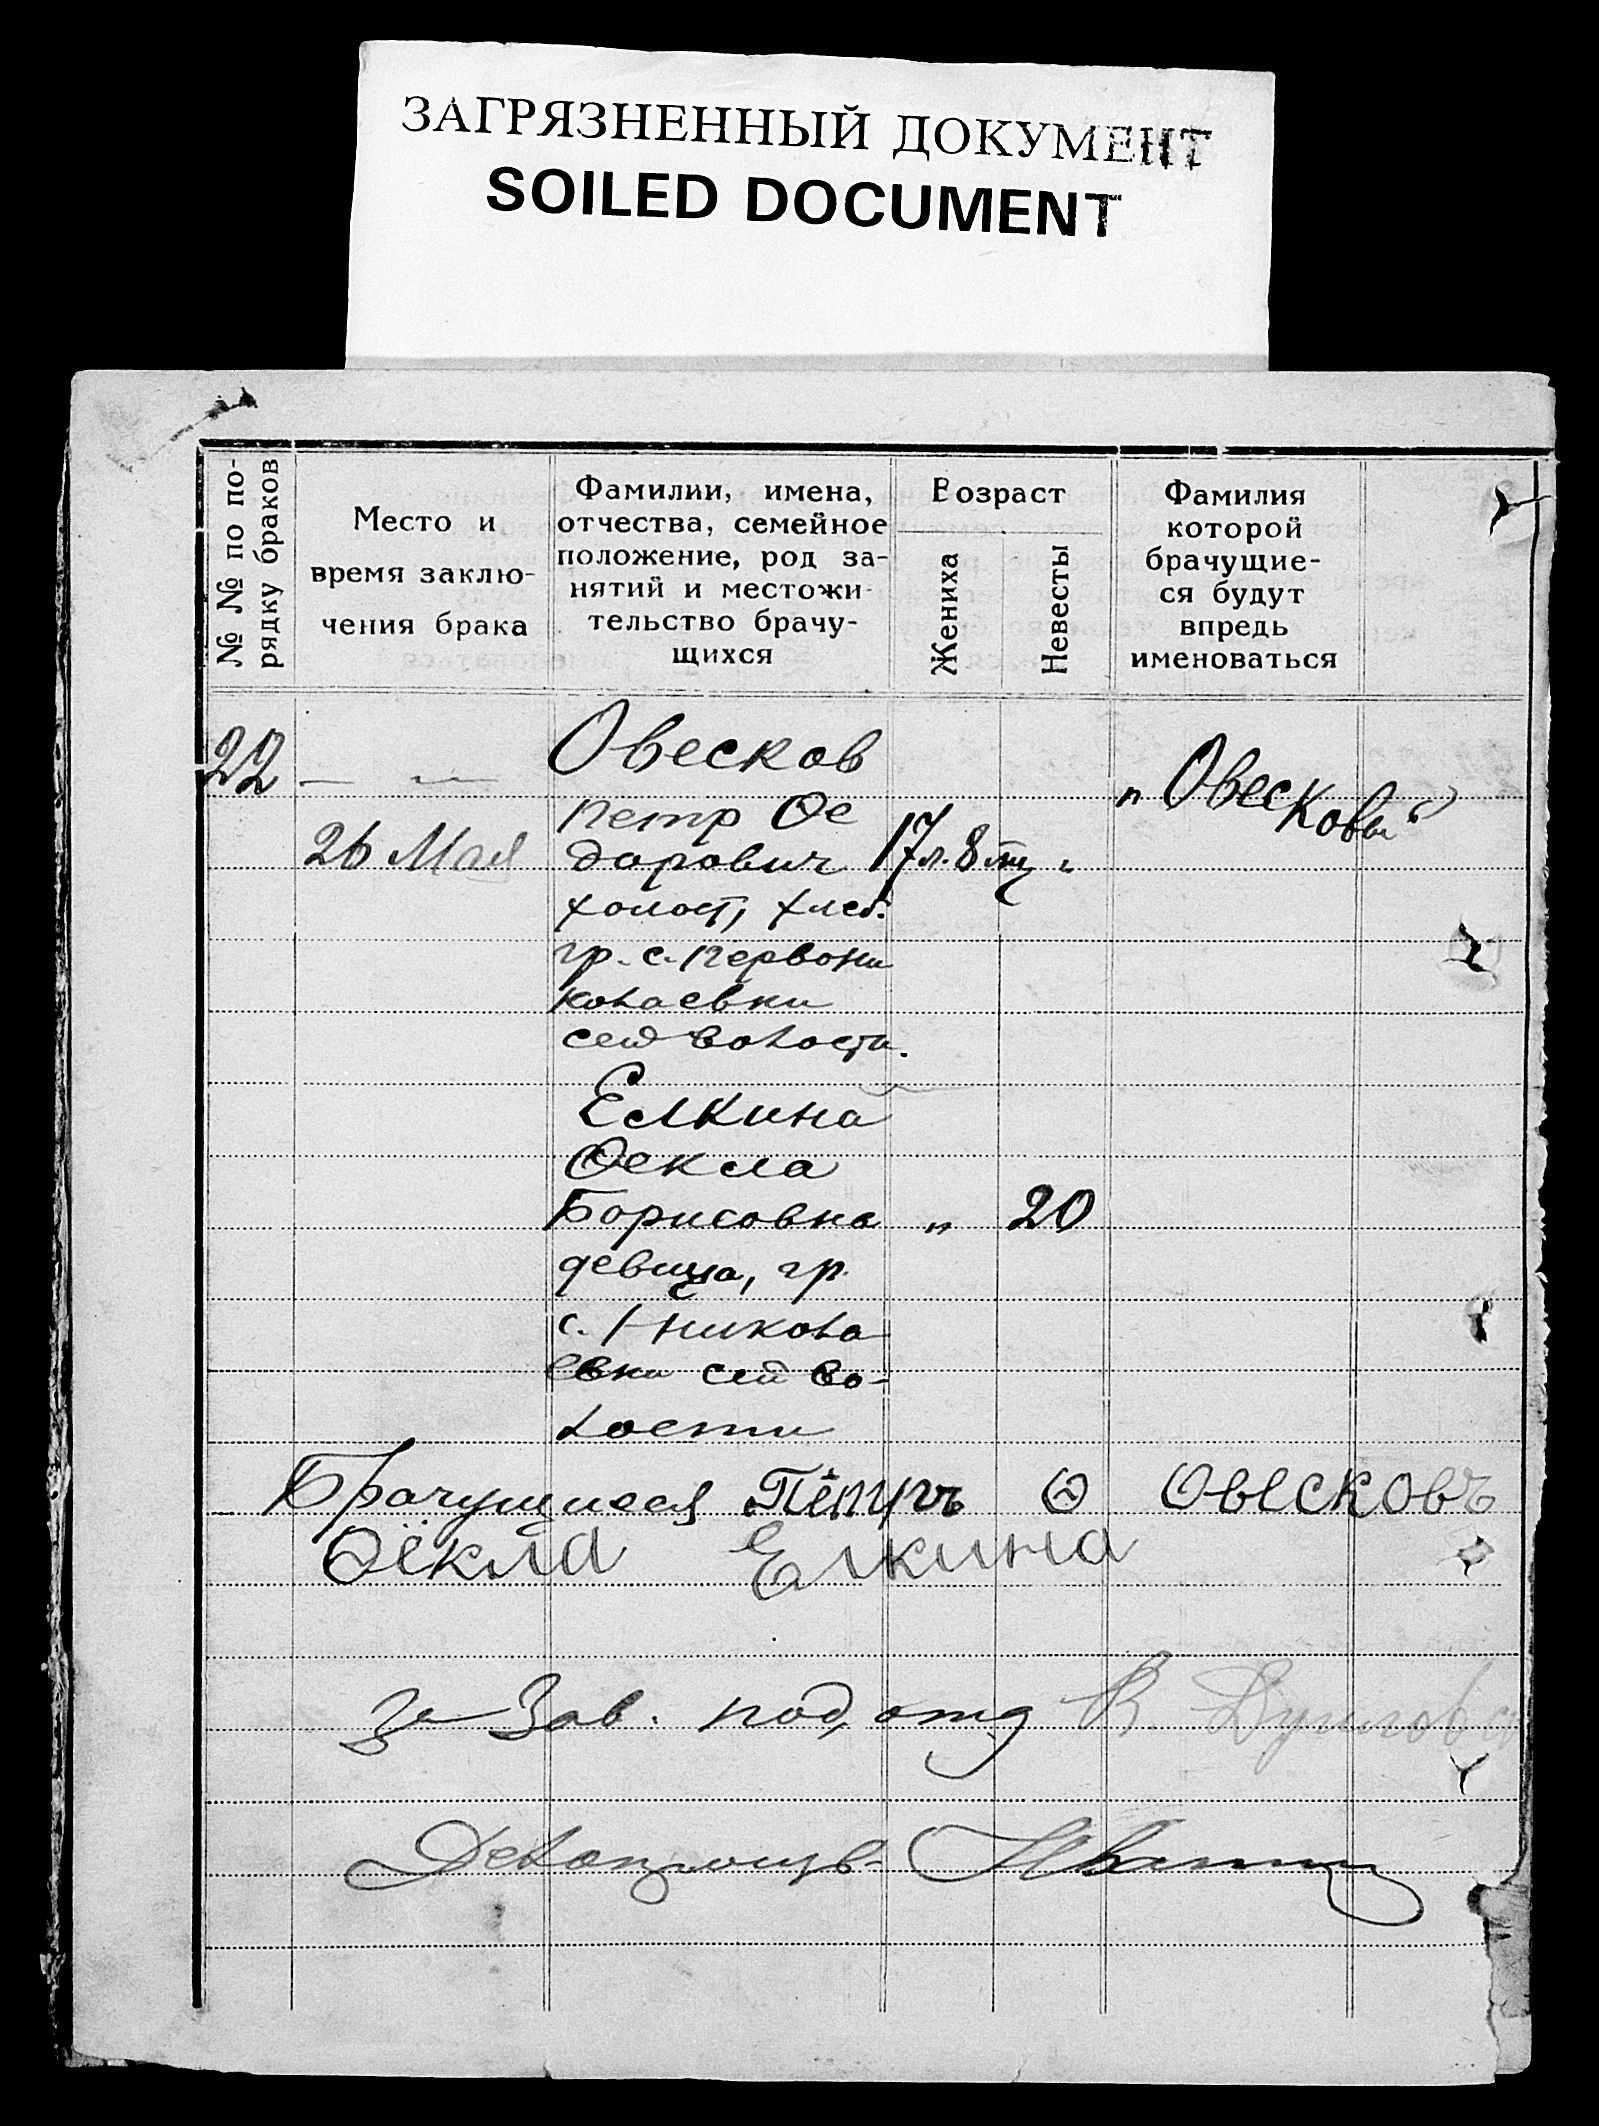 ЗАГРЯЗНЕННЫЙ ДОКУМЕНТ
SOILED DOCUMENT
№ № по по-
рядку браков
Место и
время заклю-
чения брака
Фамилии, имена,
отчества, семейное
положение, род за-
нятий и местожи-
тельство брачу-
щихся
Возраст
Жениха
Невесты
Фамилия
которой
брачущие-
ся будут
впредь
именоваться
22 — — Овесков
„ Овесковы“
Петр Ѳе
26 Мая дорович 17 л. 8 м „
холост, хлеб.
гр. с. Первони
колаевки
сей волости.
Елкина
Ѳекла
Борисовна „ 20
девица, гр.
с. I-никола
евки сей во-
лости
Брачущиеся Пётръ Ѳ Овесковъ
Ѳёкла Елкина
За Зав. под, отд
Делопроизв-